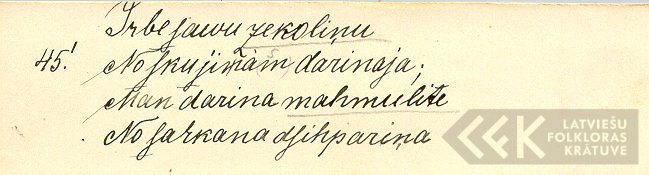 Irbe sawu zekoliņu
45! No skujiņām darinaja;
Man darina mahmulite
No sarkana dsihpariņa
LATVIEŠU
FOLKLORAS
KRĀTUVE